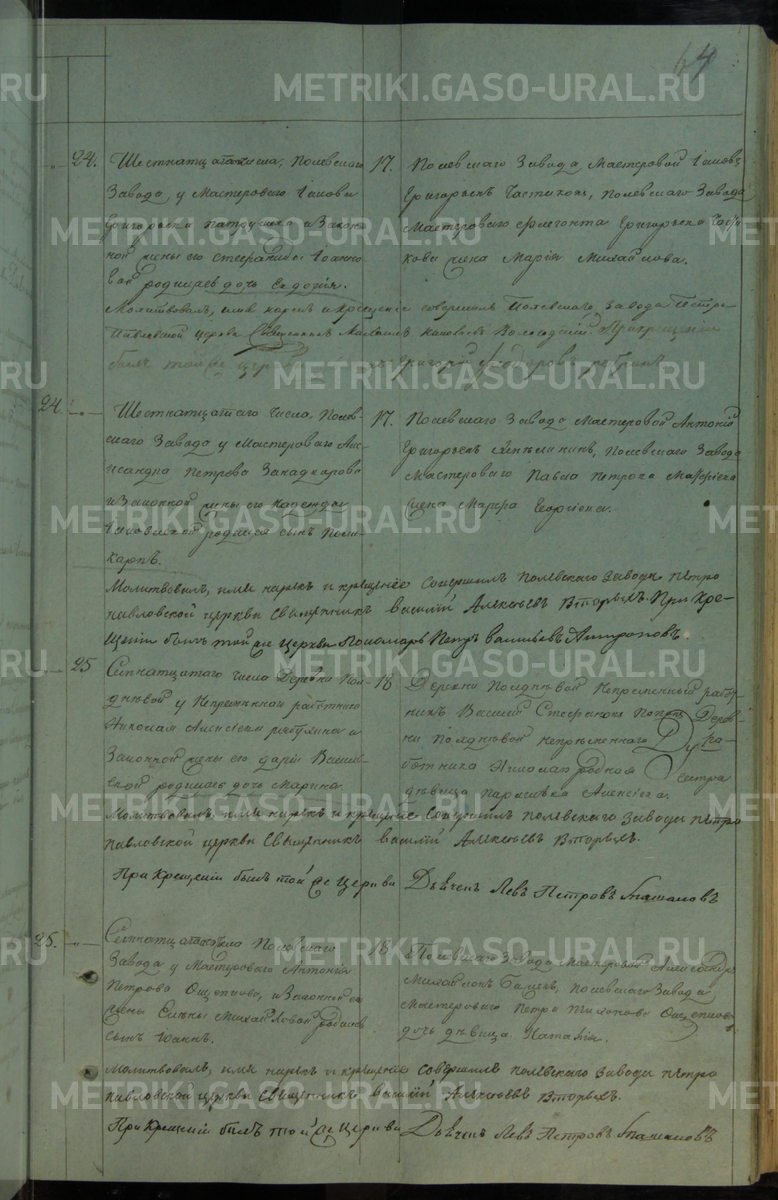 64
24. Шестнатцатаго числа, Полевскаго
Завода у Мастероваго Іакова
Григорьева и Закон-
ной жены его Іоанно-
вой родилась дочь Евдокія.
17. Полевскаго Завода Мастеровой Іаковъ
Григорьевъ Полевскаго Завода
Мастероваго Григорьева
жена Марія Михайлова.
Молитвовалъ, имя нарекъ и крещеніе совершилъ Полевскаго Завода Петро-
Павловской церкви Священникъ При крещеніи
былъ той же церкви Григорій
24. Шестнатцатаго числа, Полев-
скаго Завода у Мастероваго Але-
ксандра Петрова
и Законной жены его Надежды
Іаковлевой родился сынъ Поли-
карпъ.
17. Полевскаго Завода Мастеровой Антоній
Григорьевъ Полевскаго Завода
Мастероваго Павла Петрова
жена Марфа Георгіева.
Молитвовалъ, имя нарекъ и крещеніе совершилъ Полевскаго Завода Петро
павловской церкви Священникъ Василій Алексѣевъ Вторыхъ. При кре-
щеніи былъ той же церкви Пономарь Петръ Васильевъ Антроповъ.
25 Семнатцатаго числа Деревни Пол-
дневой у Непремѣннаго работника
Николая Алексѣева и
Законной жены его Даріи Васильев-
ской родилась дочь Марина.
18 Деревни Полдневой Непремѣнный работ-
никъ Василій Стефановъ Поповъ Дерев-
ни Полдневой Непремѣннаго Ра-
ботника Николая родная сестра
дѣвица Парасковья Алексѣева.
Молитвовалъ, имя нарекъ и крещеніе совершилъ Полевскаго Завода Петро
павловской церкви Священникъ Василій Алексѣевъ Вторыхъ.
При крещеніи былъ той же Церкви Дьяченъ Левъ Петровъ
25. Семнатцатаго числа Полевскаго
Завода у Мастероваго Антонія
Петрова Ощепкова, и Законной его
жены Елены Михайловой родился
сынъ Іоаннъ.
18. Полевскаго Завода Мастеровой Александръ
Михайловъ Полевскаго Завода
Мастероваго Петра Ощепкова
дочь дѣвица Наталія.
Молитвовалъ, имя нарекъ и крещеніе совершилъ Полевскаго Завода Петро
павловской церкви Священникъ Василій Алексѣевъ Вторыхъ.
При крещеніи былъ той же Церкви Дьяченъ Левъ Петровъ
METRIKI.GASO-URAL.RU